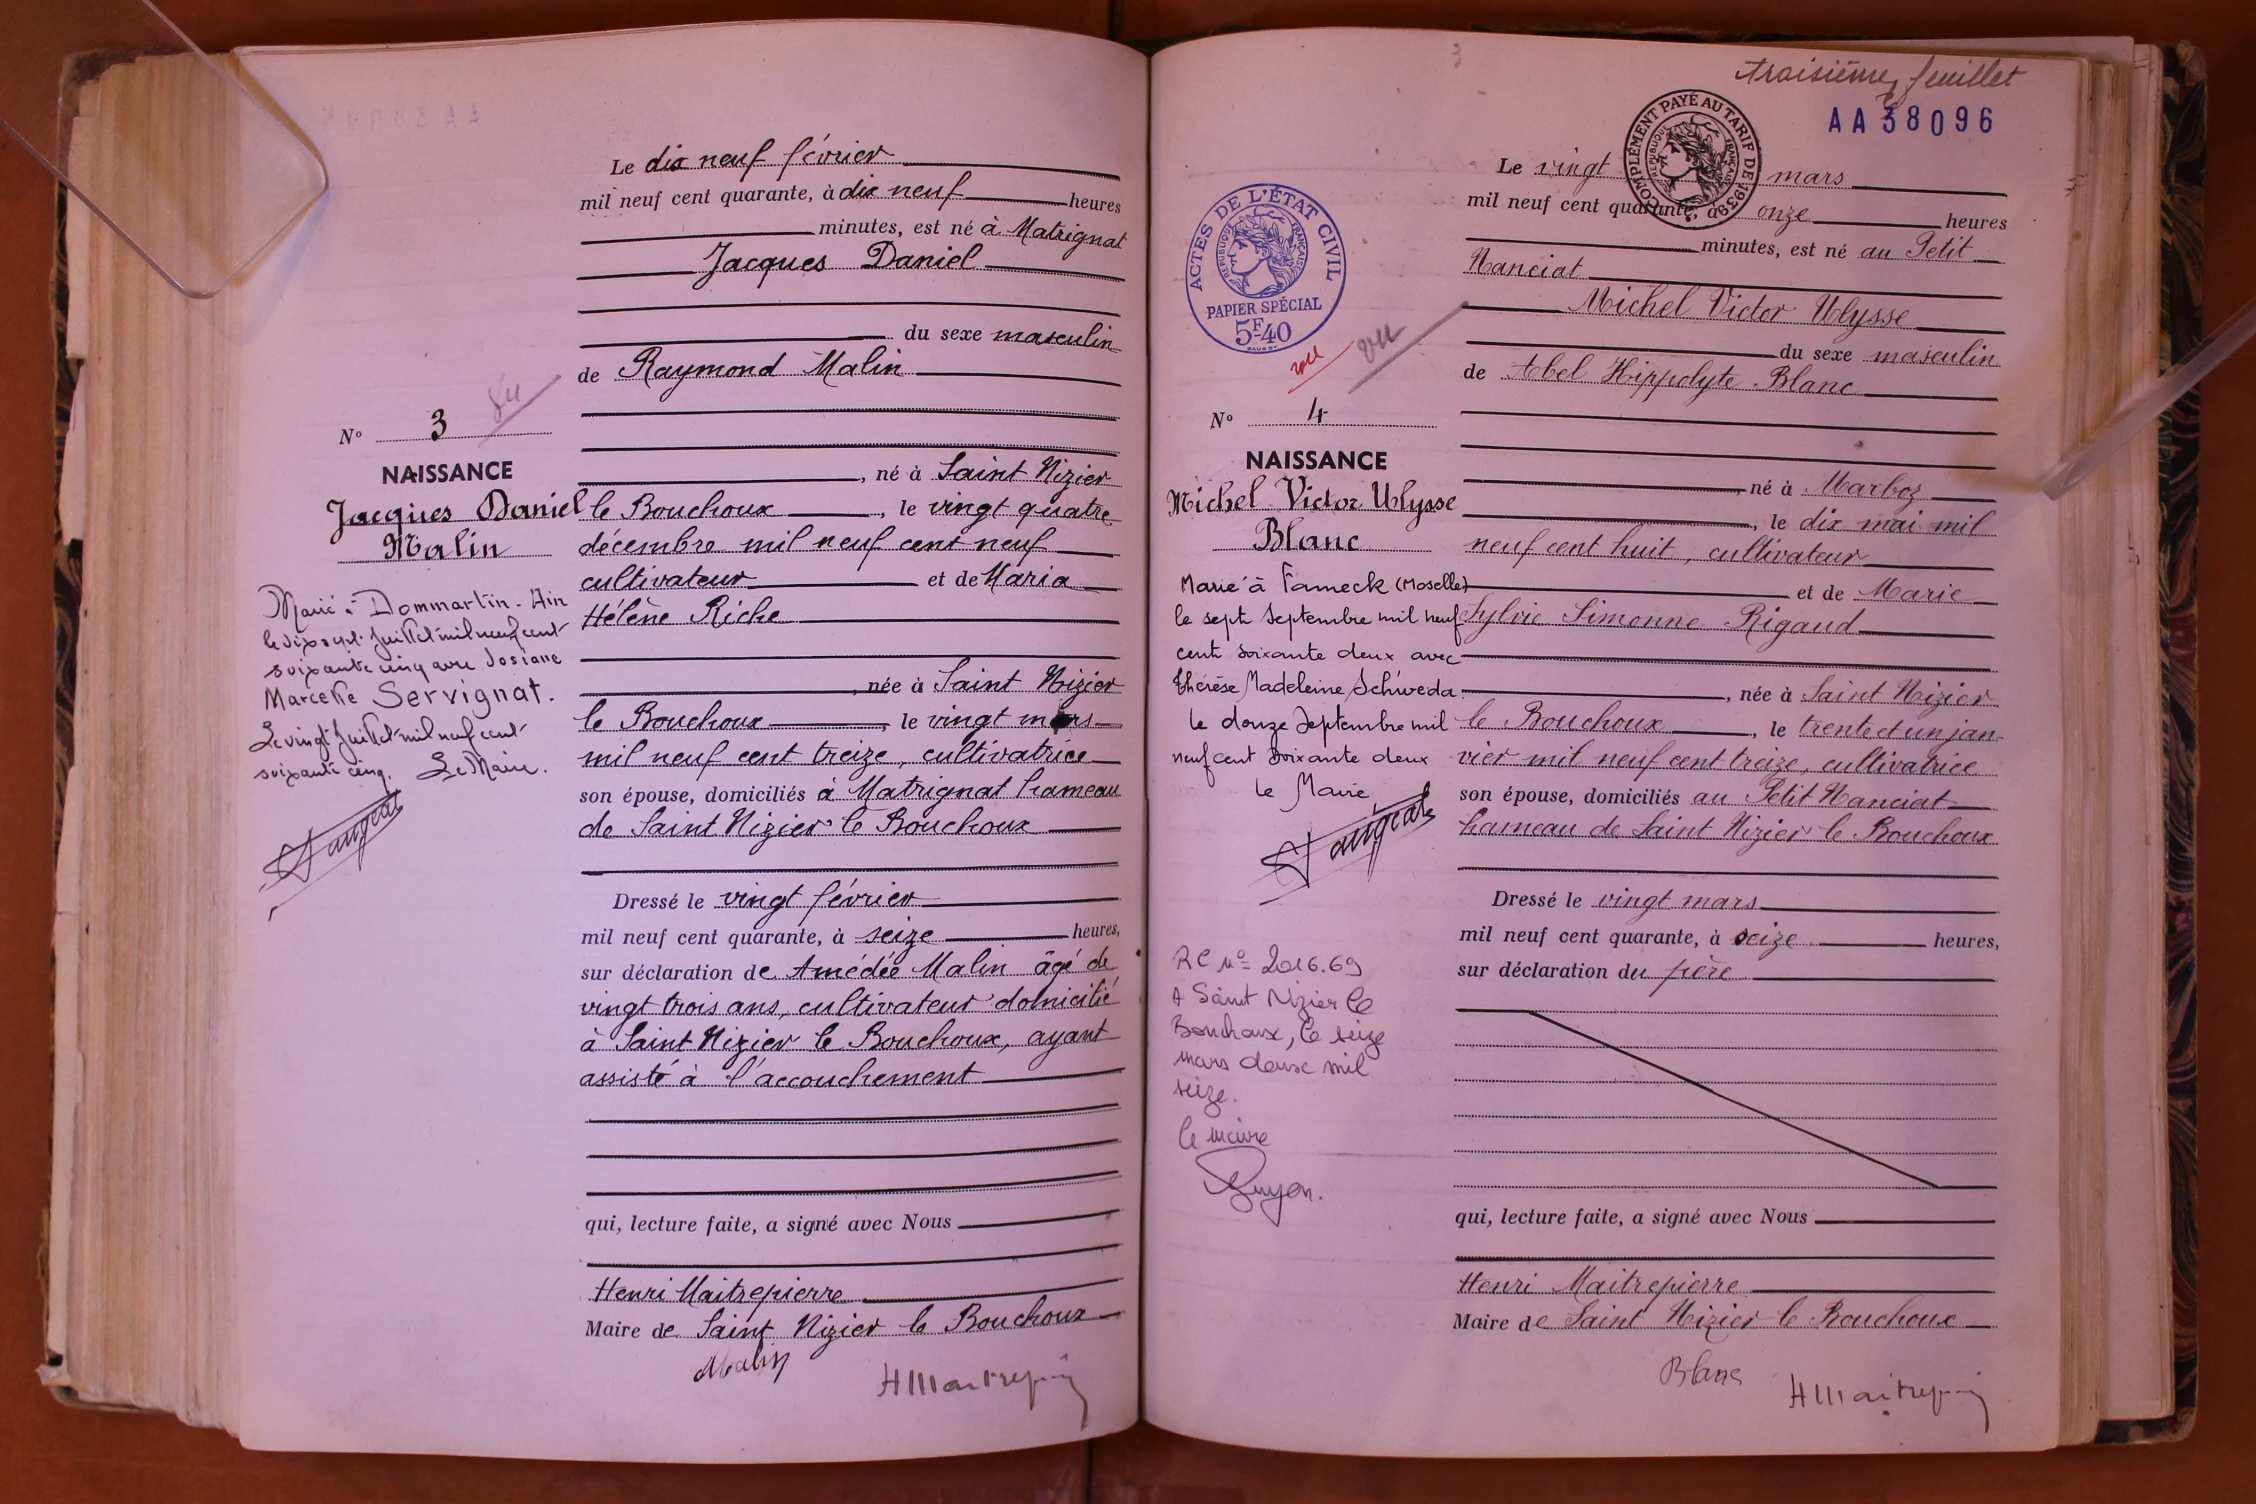 Le dix neuf février
mil neuf cent quarante, à dix neuf heures
minutes, est né à Matrignat
Jacques Daniel
du sexe masculin
de Raymond Malin
N° 3
NAISSANCE
Jacques Daniel
Malin
, né à Saint Nizier
le Bouchoux, le vingt quatre
décembre mil neuf cent neuf
cultivateur et de Maria
Hélène Riche
née à Saint Nizier
le Bouchoux, le vingt mars
mil neuf cent treize, cultivatrice
son épouse, domiciliés à Matrignat hameau
de Saint Nizier le Bouchoux
Marié à Dommartin - Ain
le dix sept juillet mil neuf cent
soixante cinq avec Josiane
Marcelle Servignat.
Le vingt juillet mil neuf cent
soixante cinq. Le Maire.
Dressé le vingt février
mil neuf cent quarante, à seize heures,
sur déclaration de Amédée Malin âgé de
vingt trois ans, cultivateur domicilié
à Saint Nizier le Bouchoux, ayant
assisté à l'accouchement
qui, lecture faite, a signé avec Nous
Henri Maitrepierre
Maire de Saint Nizier le Bouchoux
Malin
troisième feuillet
AA38096
COMPLÉMENT PAYÉ AU TARIF DE 1939
RÉPUBLIQUE FRANÇAISE
ACTES DE L'ÉTAT CIVIL
RÉPUBLIQUE FRANÇAISE
PAPIER SPÉCIAL
5F40
vu
vu
Le vingt mars
mil neuf cent quarante, à onze heures
minutes, est né au Petit
Nanciat
Michel Victor Ulysse
du sexe masculin
de Abel Hippolyte Blanc
N° 4
NAISSANCE
Michel Victor Ulysse
Blanc
né à Marboz
, le dix mai mil
neuf cent huit, cultivateur
et de Marie
Sylvie Simonne Rigaud
, née à Saint Nizier
le Bouchoux, le trente et un jan
vier mil neuf cent treize, cultivatrice
son épouse, domiciliés au Petit Nanciat
hameau de Saint Nizier le Bouchoux
Marié à Fameck (Moselle)
le sept Septembre mil neuf
cent soixante deux avec
Thérèse Madeleine Schweda.
le douze Septembre mil
neuf cent soixante deux
le Maire
Dressé le vingt mars
mil neuf cent quarante, à seize heures,
sur déclaration du père
RC n° 2016.69
A Saint Nizier le
Bouchoux, le seize
mars deux mil
seize.
le maire
Guyon.
qui, lecture faite, a signé avec Nous
Henri Maitrepierre
Maire de Saint Nizier le Bouchoux
Blanc